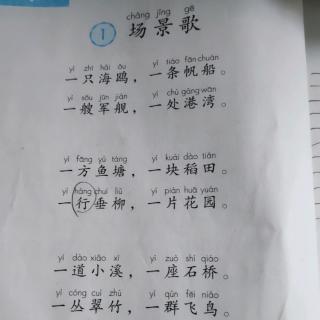 chǎng jǐng gē
1 场景歌
yì zhī hǎi ōu  yì tiáo fān chuán
一只海鸥，一条帆船。
yì sōu jūn jiàn  yí chù gǎng wān
一艘军舰，一处港湾。
yì fāng yú táng  yí kuài dào tián
一方鱼塘，一块稻田。
yì háng chuí liǔ  yí piàn huā yuán
一行垂柳，一片花园。
yí dào xiǎo xī  yí zuò shí qiáo
一道小溪，一座石桥。
yì cóng cuì zhú  yì qún fēi niǎo
一丛翠竹，一群飞鸟。